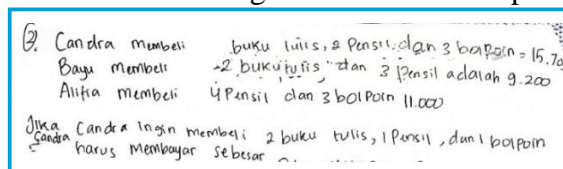 2. Candra membeli buku tulis, 2 Pensil dan 3 bolpoin = 15.70
Bayu membeli 2 buku tulis dan 3 Pensil adalah 9.200
Alifia membeli 4 Pensil dan 3 bolpoin 11.000
Jika Candra ingin membeli 2 buku tulis, 1 Pensil, dan 1 bolpoin
Candra harus membayar sebesar